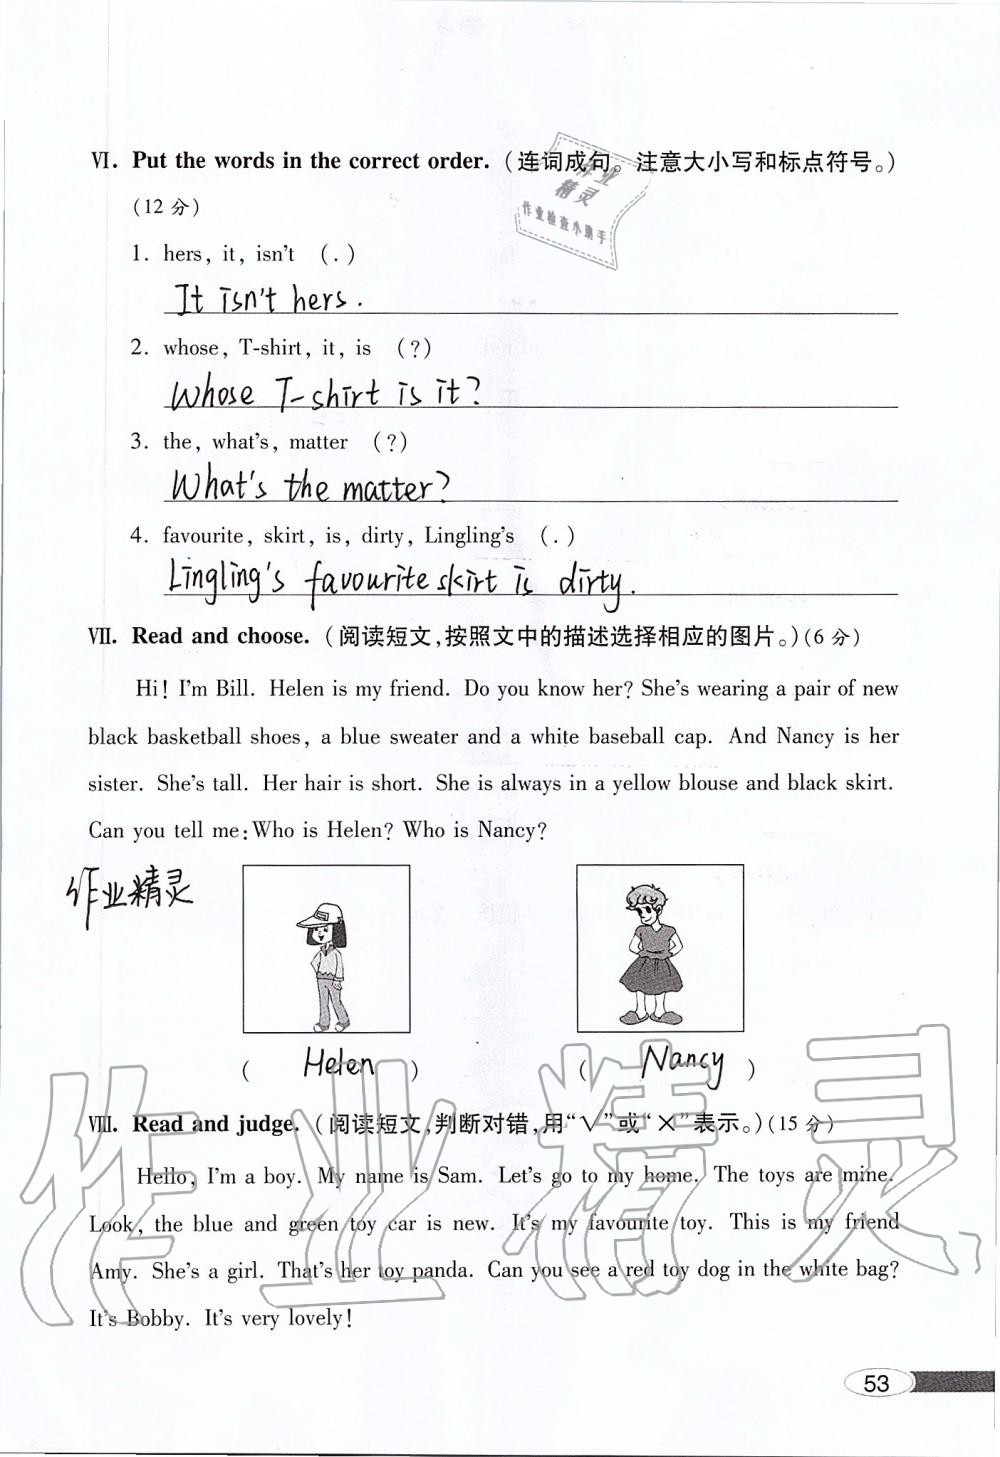 Ⅵ. Put the words in the correct order. (连词成句。注意大小写和标点符号。)
(12 分)
作业
精灵
作业检查小助手
1. hers, it, isn't (.)
It isn't hers.
2. whose, T-shirt, it, is (?)
Whose T-shirt is it?
3. the, what's, matter (?)
What's the matter?
4. favourite, skirt, is, dirty, Lingling's (.)
Lingling's favourite skirt is dirty.
Ⅶ. Read and choose. (阅读短文,按照文中的描述选择相应的图片。)(6 分)
Hi! I'm Bill. Helen is my friend. Do you know her? She's wearing a pair of new
black basketball shoes, a blue sweater and a white baseball cap. And Nancy is her
sister. She's tall. Her hair is short. She is always in a yellow blouse and black skirt.
Can you tell me: Who is Helen? Who is Nancy?
作业精灵
( Helen ) ( Nancy )
Ⅷ. Read and judge. (阅读短文,判断对错,用“√”或“×”表示。)(15 分)
Hello, I'm a boy. My name is Sam. Let's go to my home. The toys are mine.
Look, the blue and green toy car is new. It's my favourite toy. This is my friend
Amy. She's a girl. That's her toy panda. Can you see a red toy dog in the white bag?
It's Bobby. It's very lovely!
作业精灵
53